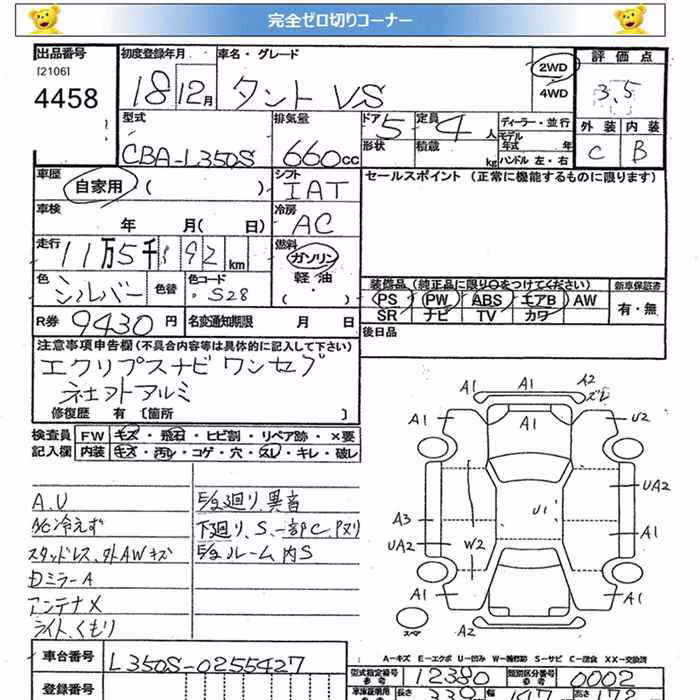 完全ゼロ切りコーナー
出品番号 初度登録年月 車名・グレード 2WD 評価点
[2106] 18 12月 タント VS 4WD 3.5
4458 外装 内装
型式 排気量 ドア 定員 ディーラー・並行 C B
CBA-L350S 660cc 5 4人 モデル年式 年式
形状 積載 kg ハンドル 左・右
車歴 シフト セールスポイント (正常に機能するものに限ります)
自家用 ( ) IAT
車検 冷房
年 月( 日) AC
走行 燃料
11万5千 92 km ガソリン
色 色替 色コード 軽油
シルバー S28 ( )
装備品 (純正品に限り○をつけてください) 新車保証書
PS PW ABS エアB AW 有・無
SR ナビ TV カワ
R券 9430円 名変通知期限 月 日
後日品
注意事項申告欄(不具合内容等は具体的に記入して下さい)
エクリプスナビ ワンセグ
社外アルミ
修復歴 有 [箇所 ]
検査員 FW キズ・飛石・ヒビ割・リペア跡・×要
記入欄 内装 キズ・汚レ・コゲ・穴・スレ・キレ・破レ
A.U
A/C冷えず
スタッドレス、外AWキズ
Dミラー A
アンテナ X
ライト、くもり
E/g廻り、異音
下廻り、S、一部C、Pヌリ
E/gルーム内S
A1 A1 A2
ズレ
A1 A1 U2
UA2
A3 U1 A1
UA2 W2
A1 A1
スペア A2
A-キズ E-エクボ U-凹み W-補修跡 S-サビ C-腐食 XX-交換済
車台番号 L350S-0255427
型式指定番号 12380 類別区分番号 0002
参考 参考
登録番号
車庫証明用 長さ 339